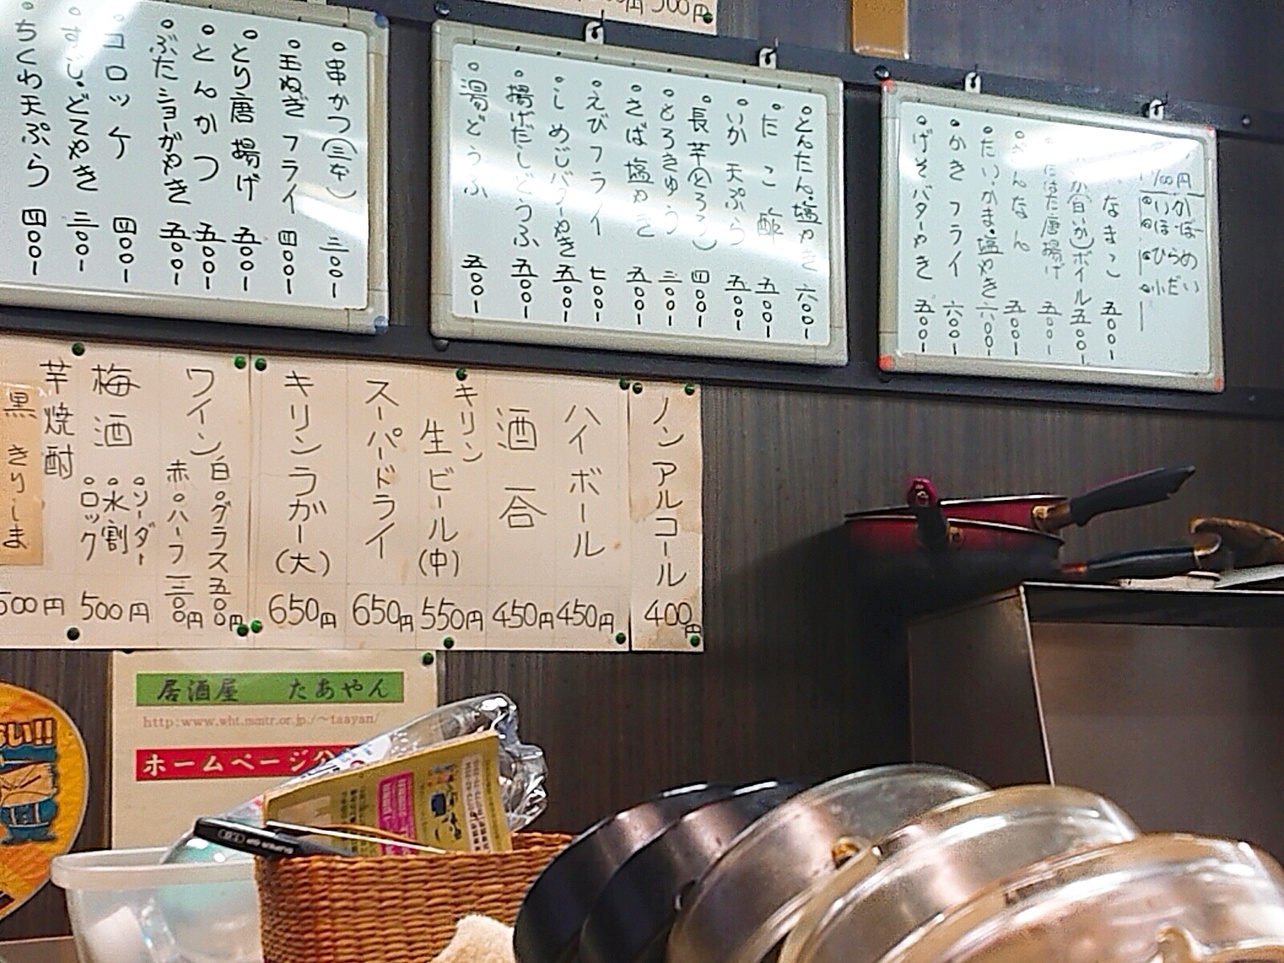 300円
なまこ 五〇〇ー
かき フライ 六〇〇ー
げそ バターやき 五〇〇ー
とんたん塩やき 六〇〇ー
たこ酢 五〇〇ー
いか天ぷら 五〇〇ー
長芋(とろろ) 四〇〇ー
とろきゅう 三〇〇ー
さば塩やき 五〇〇ー
えびフライ 七〇〇ー
しめじバターやき 五〇〇ー
揚げだしどうふ 五〇〇ー
湯どうふ 五〇〇ー
串かつ(三本) 三〇〇ー
玉ねぎ フライ 四〇〇ー
とり唐揚げ 五〇〇ー
とんかつ 五〇〇ー
ぶたショーがやき 五〇〇ー
コロッケ 四〇〇ー
すじ・どてやき 三〇〇ー
ちくわ天ぷら 四〇〇ー
ノンアルコール 400円
ハイボール 450円
酒 一合 450円
キリン生ビール(中) 550円
スーパードライ 650円
キリンラガー(大) 650円
ワイン 白 赤
グラス 五〇〇円
ハーフ 一三〇〇円
梅酒 500円
ソーダー
水割
ロック
芋焼酎 500円
黒きりしま
居酒屋 たあやん
http:www.wht.mmtr.or.jp./~taayan/
ホームページ